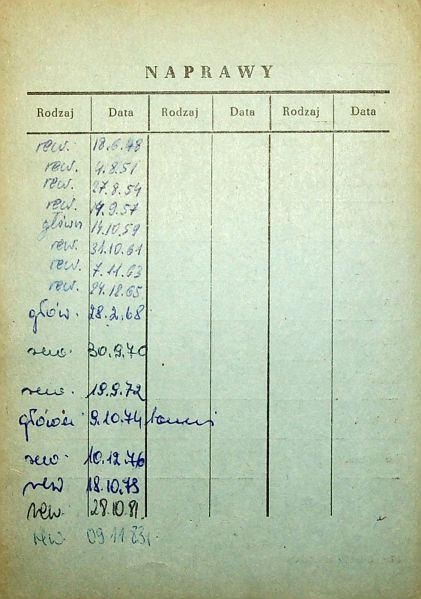 NAPRAWY
Rodzaj Data Rodzaj Data Rodzaj Data
rew. 18.6.48
rew. 4.8.51
rew. 27.8.54
rew. 14.9.57
główn 14.10.59
rew. 31.10.61
rew. 7.11.63
rew. 24.12.65
głów. 28.2.68
rew. 30.9.70
rew. 19.9.72
główn 9.10.74
rew. 10.12.76
rew 18.10.79
rew. 28.10.81.
rew. 09.11.83r.